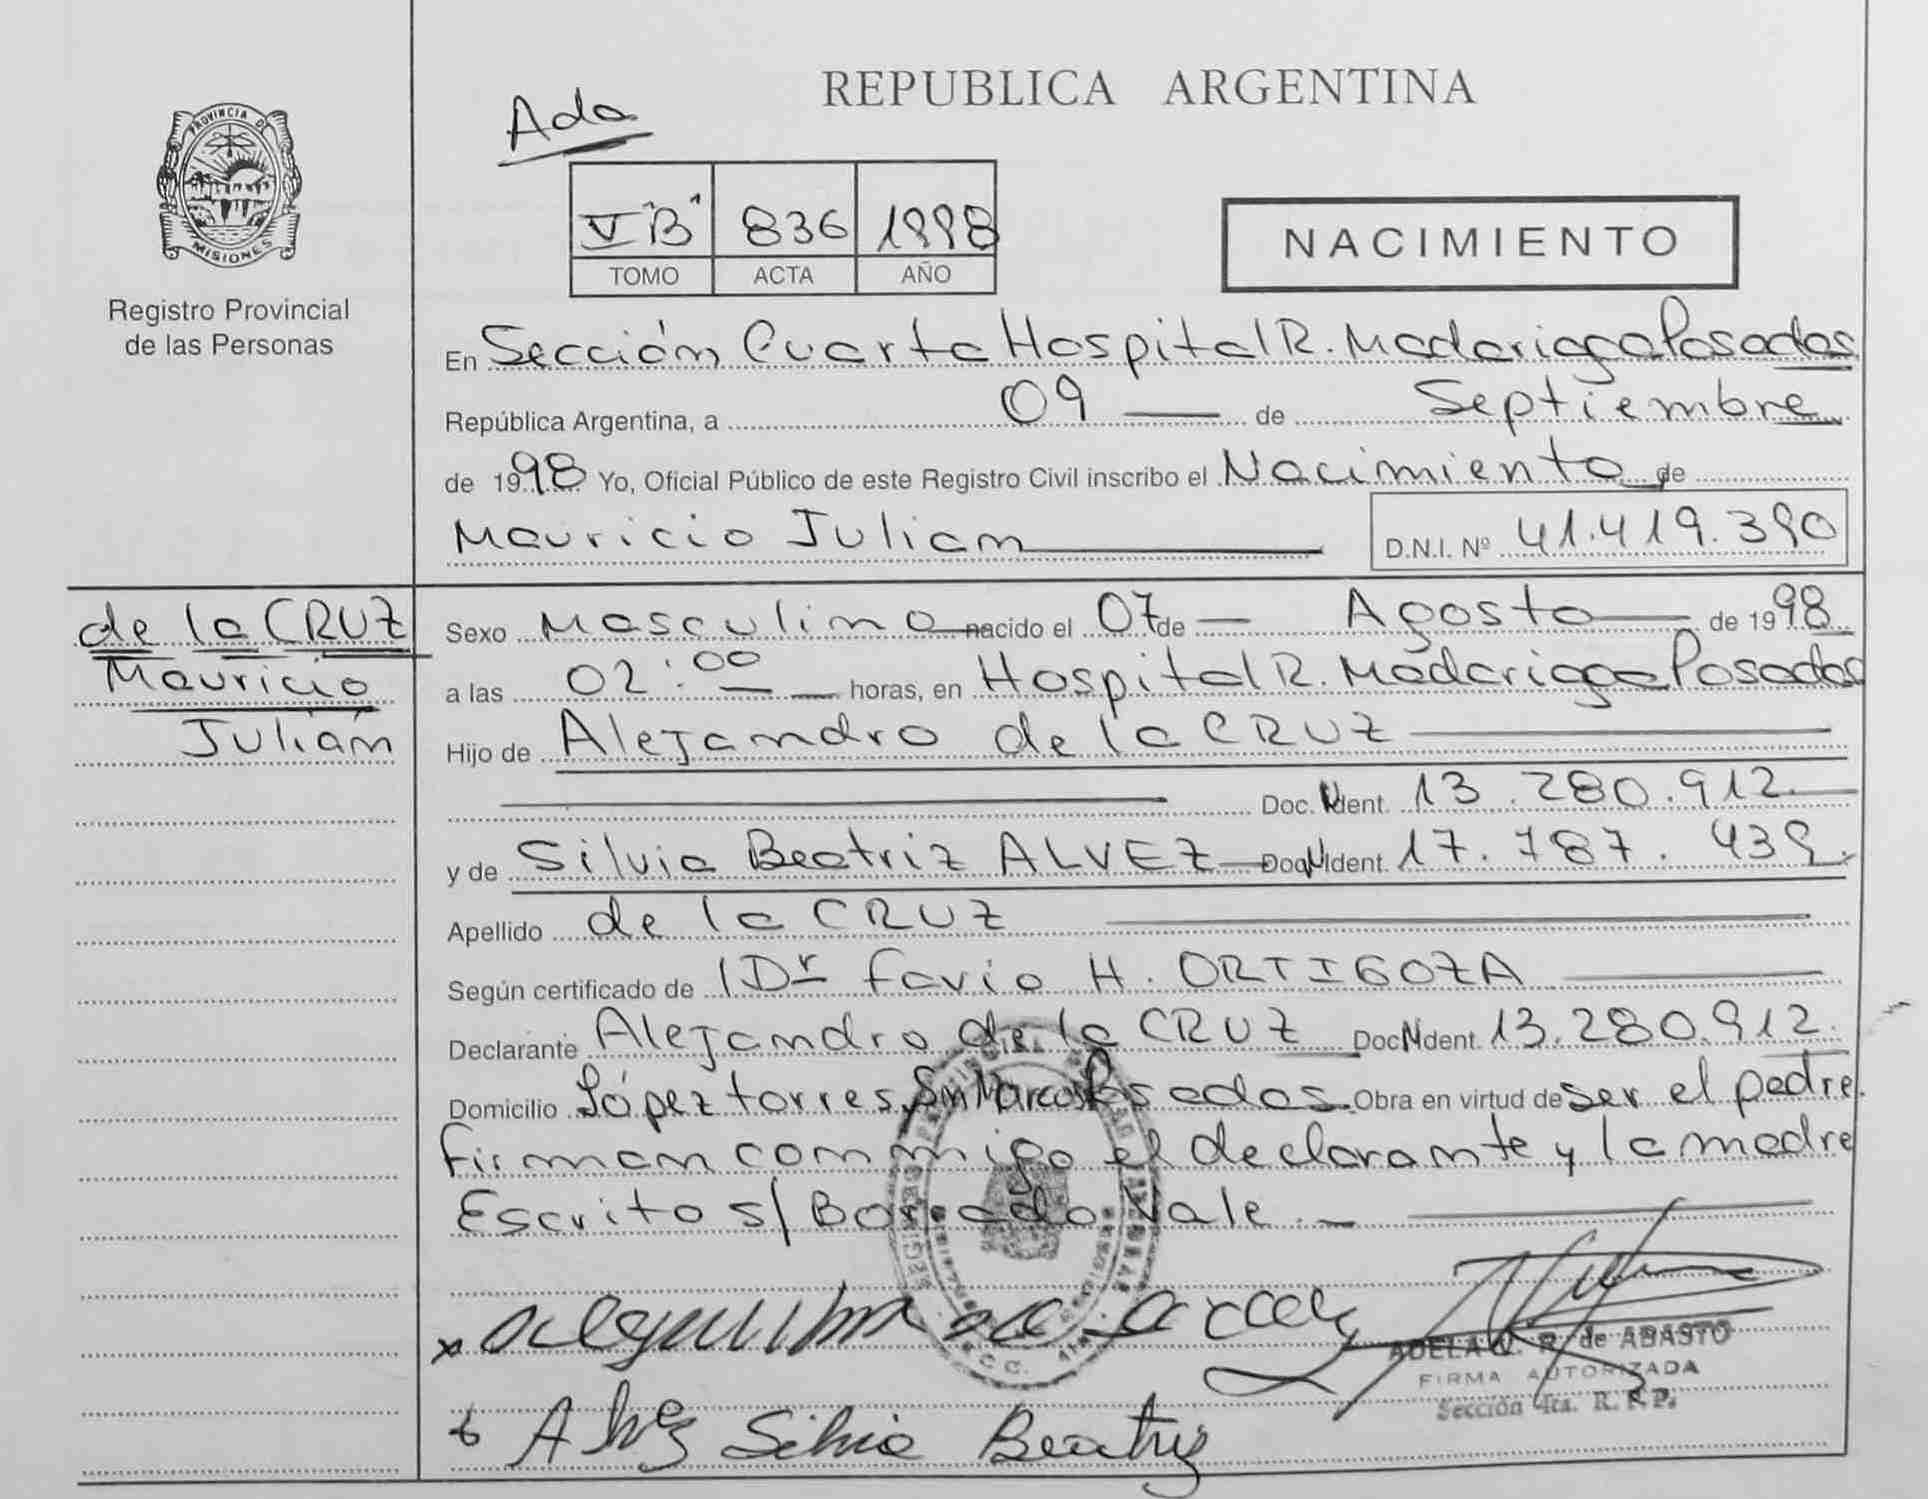 REPUBLICA ARGENTINA
Ada
PROVINCIA DE
MISIONES
Registro Provincial
de las Personas
V "B" 836 1998
TOMO ACTA AÑO
NACIMIENTO
En Sección Cuarta Hospital R. Madariaga Posadas
República Argentina, a 09 de Septiembre
de 1998 Yo, Oficial Público de este Registro Civil inscribo el Nacimiento de
Mauricio Julian D.N.I. Nº 41.419.390
de la CRUZ
Mauricio
Julián
Sexo Masculino nacido el 07 de Agosto de 1998
a las 02:00 horas, en Hospital R. Madariaga Posadas
Hijo de Alejandro de la CRUZ
Doc. Ident. 13.280.912.
y de Silvia Beatriz ALVEZ Doc. Ident. 17.787.439.
Apellido de la CRUZ
Según certificado de Dr Favio H. ORTIGOZA
Declarante Alejandro de la CRUZ Doc. Ident. 13.280.912.
Domicilio López torres S/n Marcos Posadas Obra en virtud de ser el padre.
firman conmigo el declarante y la madre
Escrito s/ Borrado Vale. -
ADELA N. R. de ABASTO
FIRMA AUTORIZADA
Sección 4ta. R. P. P.
Alvez Silvia Beatriz